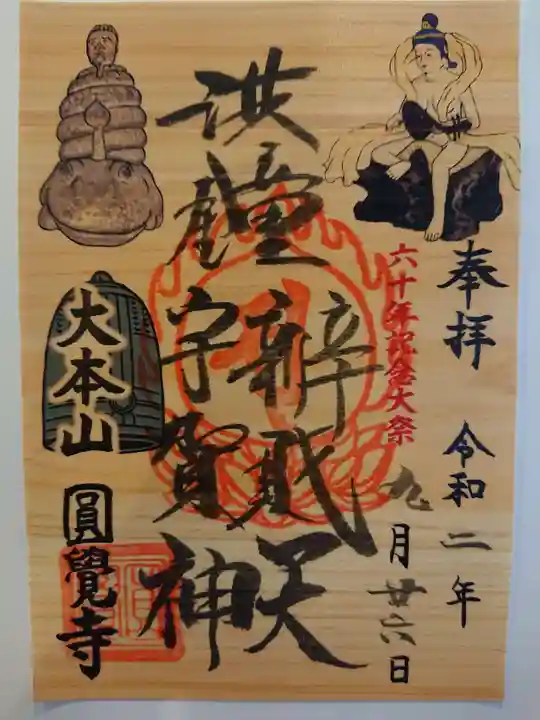 奉拝 令和二年
六十年記念大祭
九月廿六日
洪鐘
辨財天
宇賀神
大本山
圓覺寺